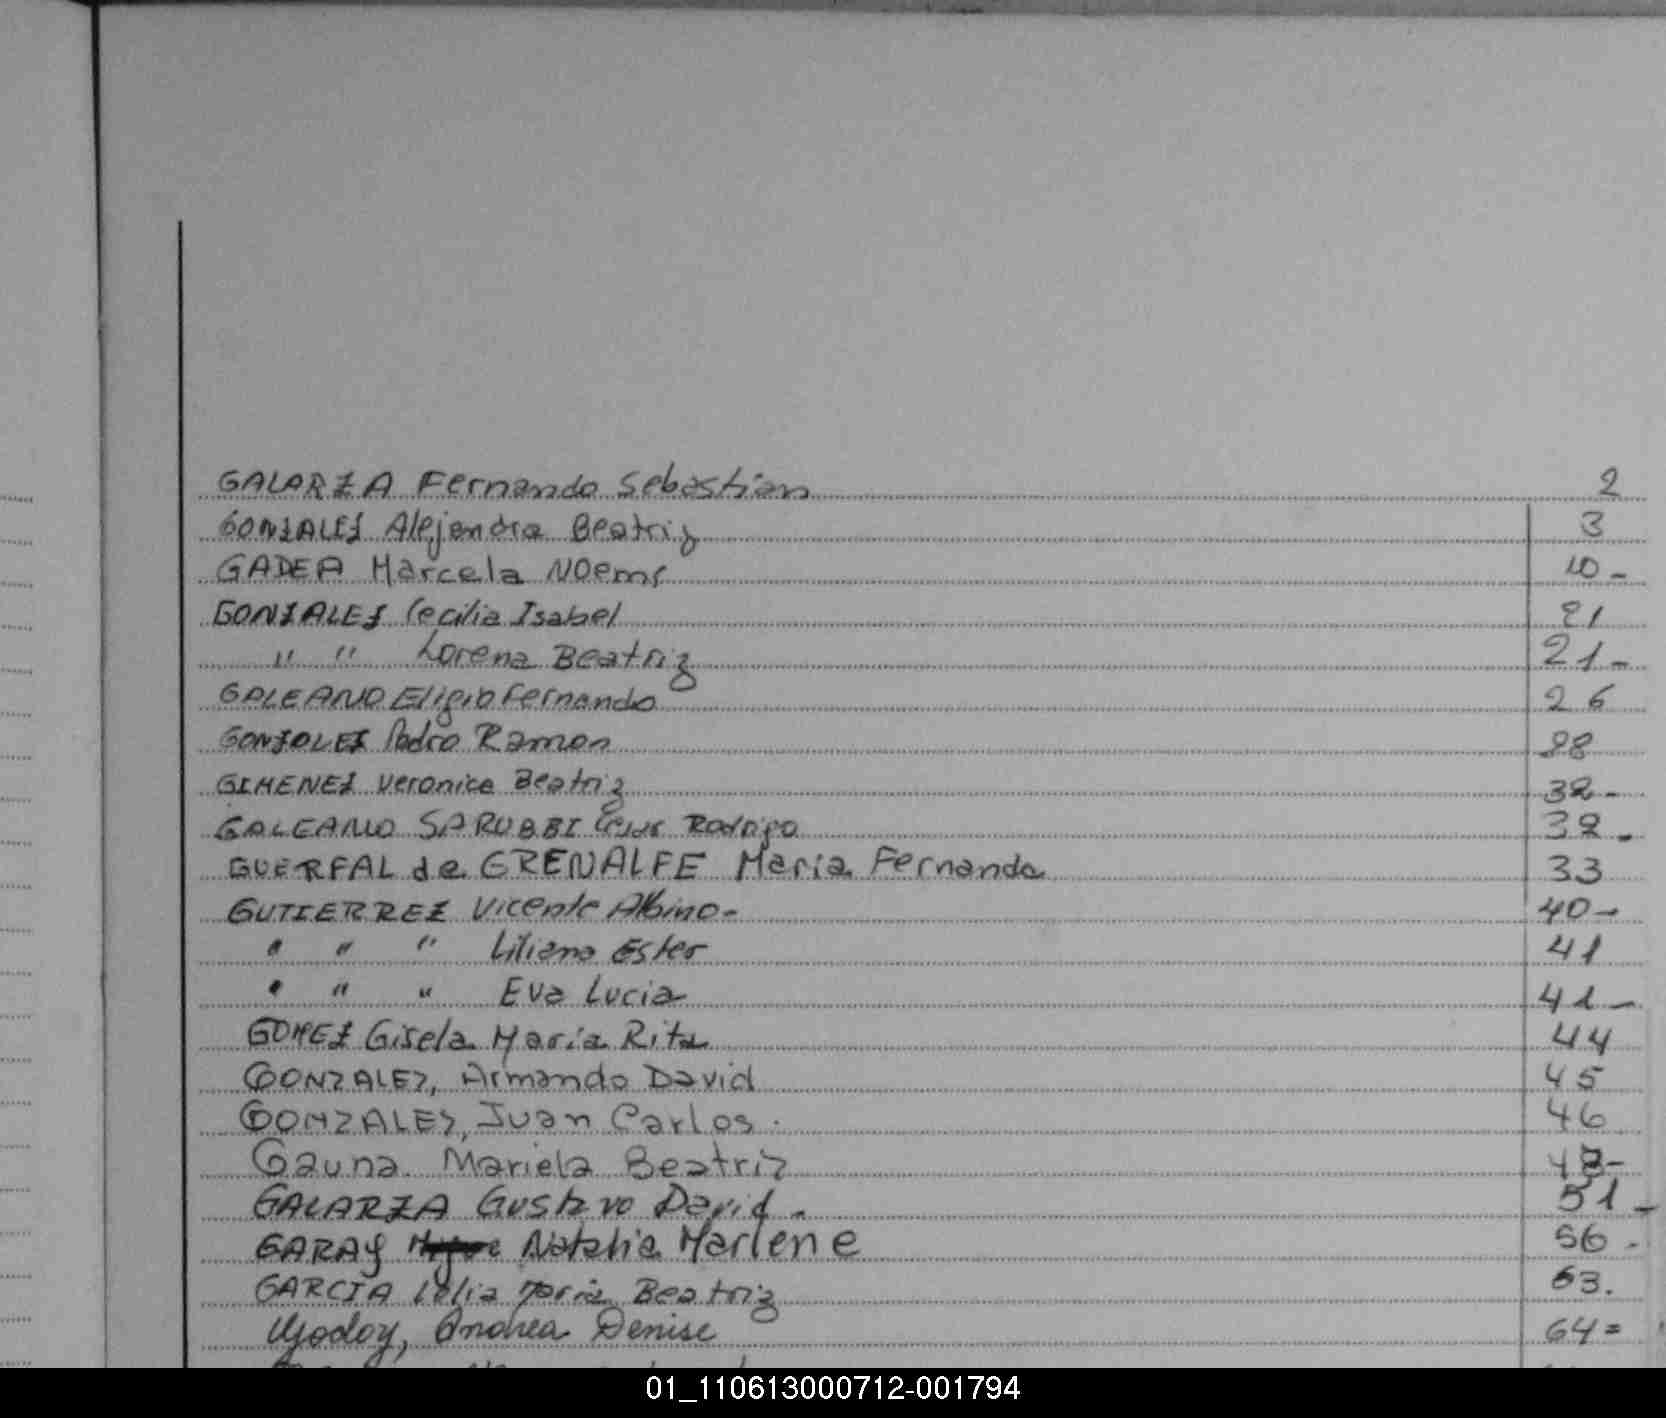 GALARZA Fernando Sebastian 2
GONZALEZ Alejandra Beatriz 3
GADEA Marcela NOemi 10-
GONZALEZ Cecilia Isabel 21
" " Lorena Beatriz 21-
GALEANO Eligio Fernando 26
GONZALEZ Pedro Ramon 28
GIMENEZ Veronica Beatriz 32-
GALEANO SARUBBI Rodrigo 32-
GUERFAL de GRENALFE Maria Fernanda 33
GUTIERREZ Vicente Albino- 40-
" " " Liliana Ester 41
" " " Eva Lucia 41-
GOMEZ Gisela Maria Rita 44
GONZALEZ, Armando David 45
GONZALEZ, Juan Carlos. 46
Gauna Mariela Beatriz
GALARZA Gustavo David. 51-
GARAY Natalia Marlene 56-
GARCIA Lelia Maria Beatriz 63.
Godoy, Andrea Denise 64=
01_110613000712-001794